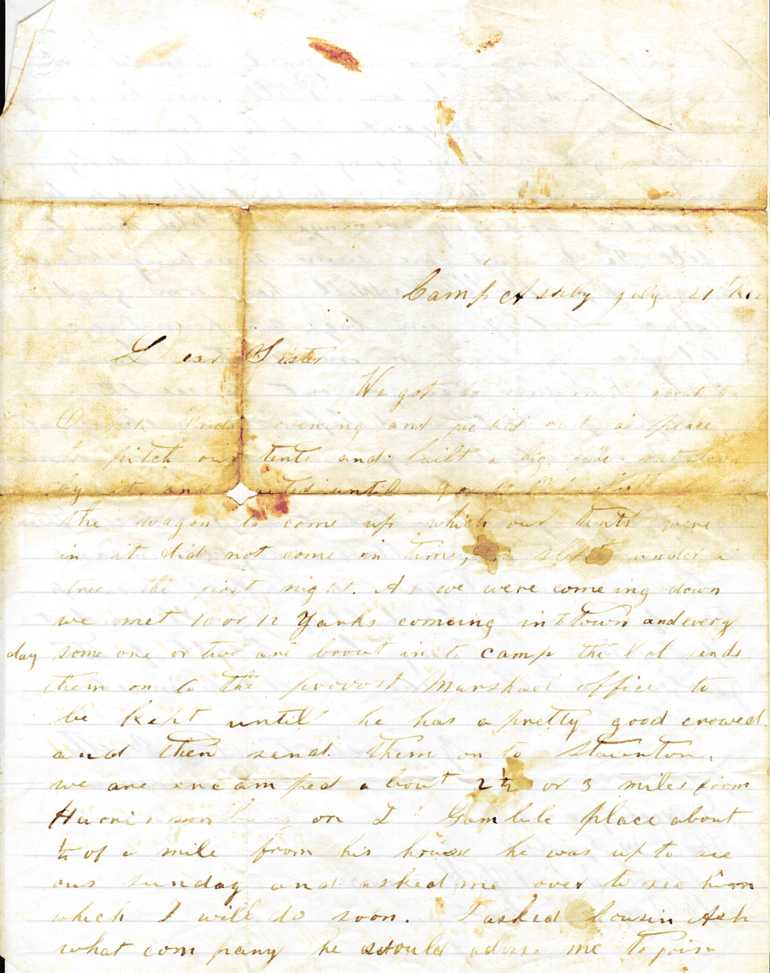 Camp Ashby July 21th
Dear Sister
We got
evening and picked out a place
to pitch our tents and built a big
by it and until
the wagon to come up which our tents were
in it did not come in time, slept under a
tree the first night. As we were comeing down
we met 10 or 12 Yanks comeing in town and every
day some one or two are brout in to camp the Col sends
them on to the provost Marshall office to
be kept until he has a pretty good crowed
and then send them on to Staunton.
we are encamped about 2½ or 3 miles from
Harrisonburg on Gambile place about
½ of a mile from his house he was up to see
ous sunday and asked me over to see him
which I will do soon. I asked Cousin Ash
what company he would advise me to join